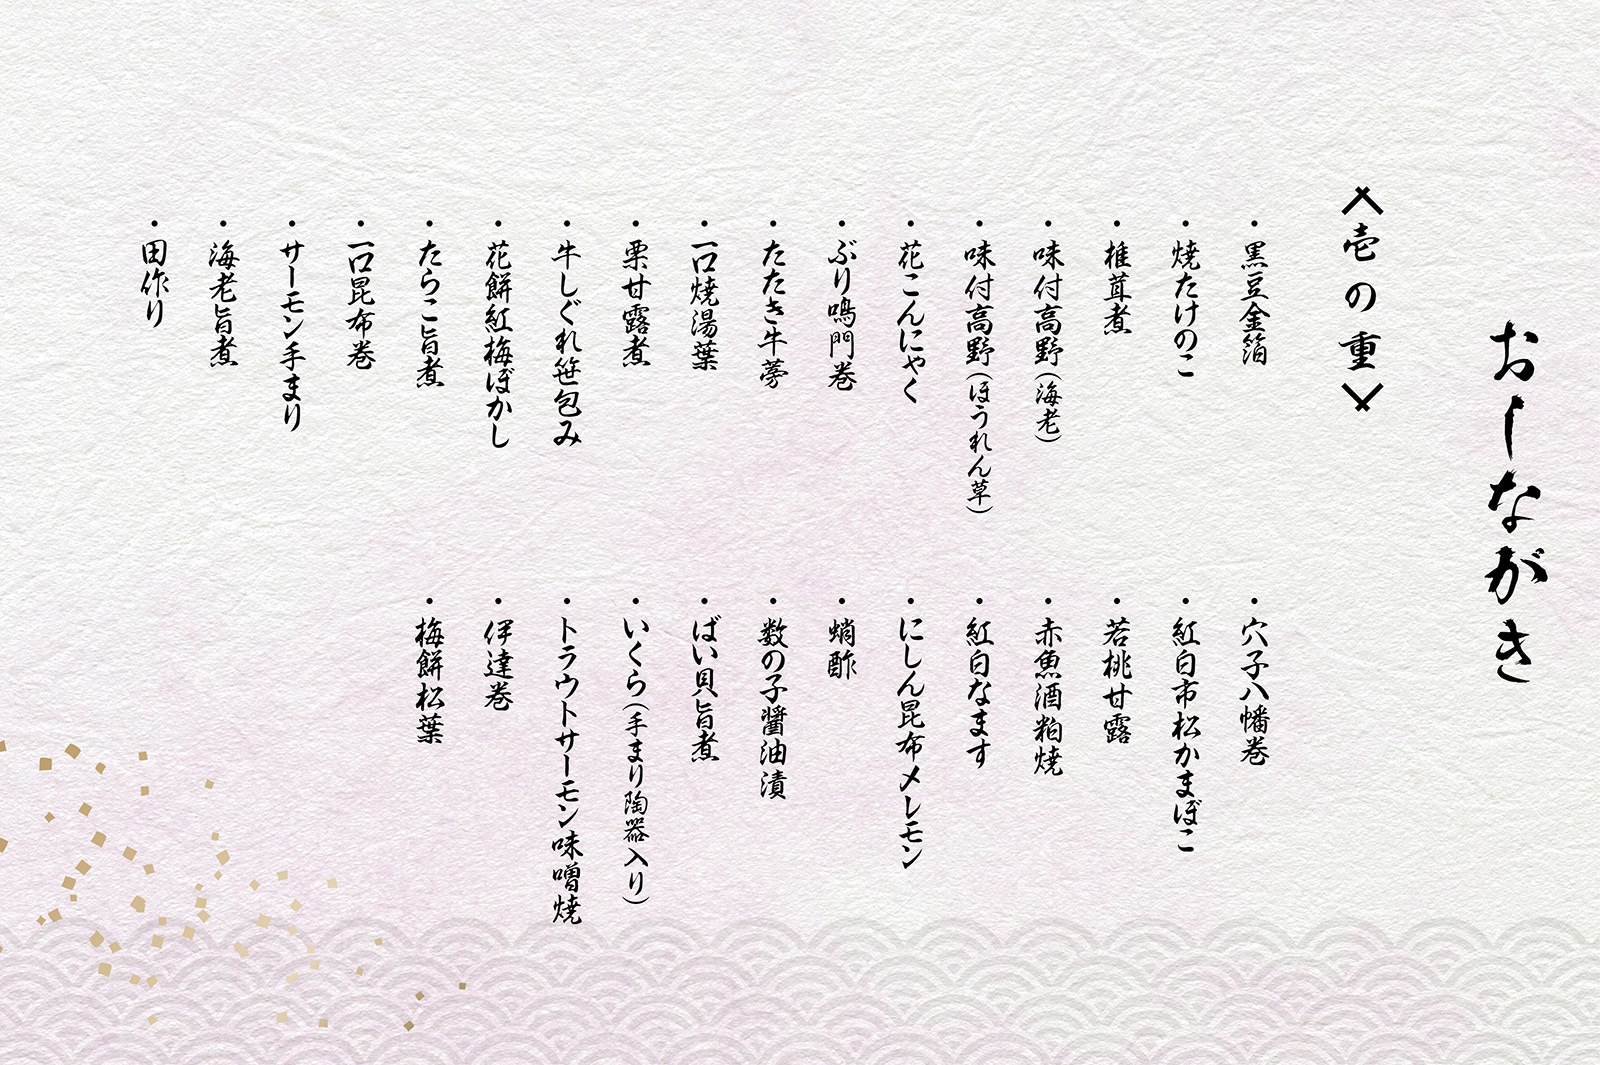 おしながき
〈壱の重〉
・黒豆金箔
・焼たけのこ
・椎茸煮
・味付高野(海老)
・味付高野(ほうれん草)
・花こんにゃく
・ぶり鳴門巻
・たたき牛蒡
・一口焼湯葉
・栗甘露煮
・牛しぐれ笹包み
・花餅紅梅ぼかし
・たらこ旨煮
・一口昆布巻
・サーモン手まり
・海老旨煮
・田作り
・穴子八幡巻
・紅白市松かまぼこ
・若桃甘露
・赤魚酒粕焼
・紅白なます
・にしん昆布〆レモン
・蛸酢
・数の子醤油漬
・ばい貝旨煮
・いくら(手まり陶器入り)
・トラウトサーモン味噌焼
・伊達巻
・梅餅松葉